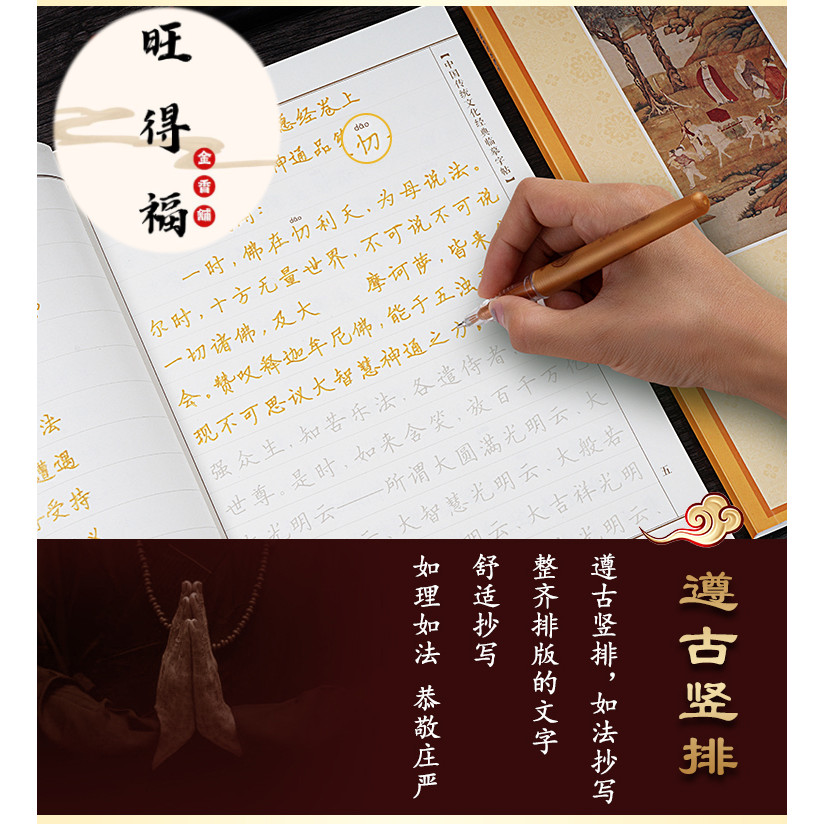 旺得福
金香舖
【中国传统文化经典临摹字帖】
愿经卷上
神通品第
dāo
忉
dāo
一时，佛在忉利天，为母说法。
尔时，十方无量世界，不可说不可说
一切诸佛，及大 摩诃萨，皆来
会。赞叹释迦牟尼佛，能于五浊
现不可思议大智慧神通之力，
强众生，知苦乐法，各遣侍者
世尊。是时，如来含笑，放百千万亿大
光明云——所谓大圆满光明云、大般若
光明云、大智慧光明云、大吉祥光明
五
法
遭遇
受持
遵古竖排
遵古竖排，如法抄写
整齐排版的文字
舒适抄写
如理如法 恭敬庄严